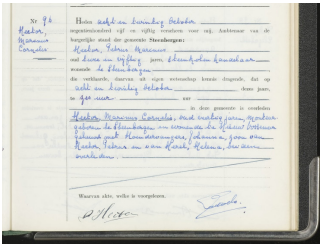 Nr 96
Heden acht en twintig October
Heeken,
Marinus
Cornelis
negentienhonderd vijf en vijftig verscheen voor mij, Ambtenaar van de
burgerlijke stand der gemeente Steenbergen:
Heeken, Petrus Marinus
oud twee en vijftig jaren, steenkolenhandelaar
wonende te Steenbergen
die verklaarde, daarvan uit eigen wetenschap kennis dragende, dat op
acht en twintig October dezes jaars,
te uur uur
in deze gemeente is overleden
Heeken Marinus Cornelis, oud veertig jaren, monteur
geboren te Steenbergen en wonende te
gehuwd met Johanna, zoon van
Heeken, Petrus en van Helena, beiden
overleden.
Waarvan akte, welke is voorgelezen.